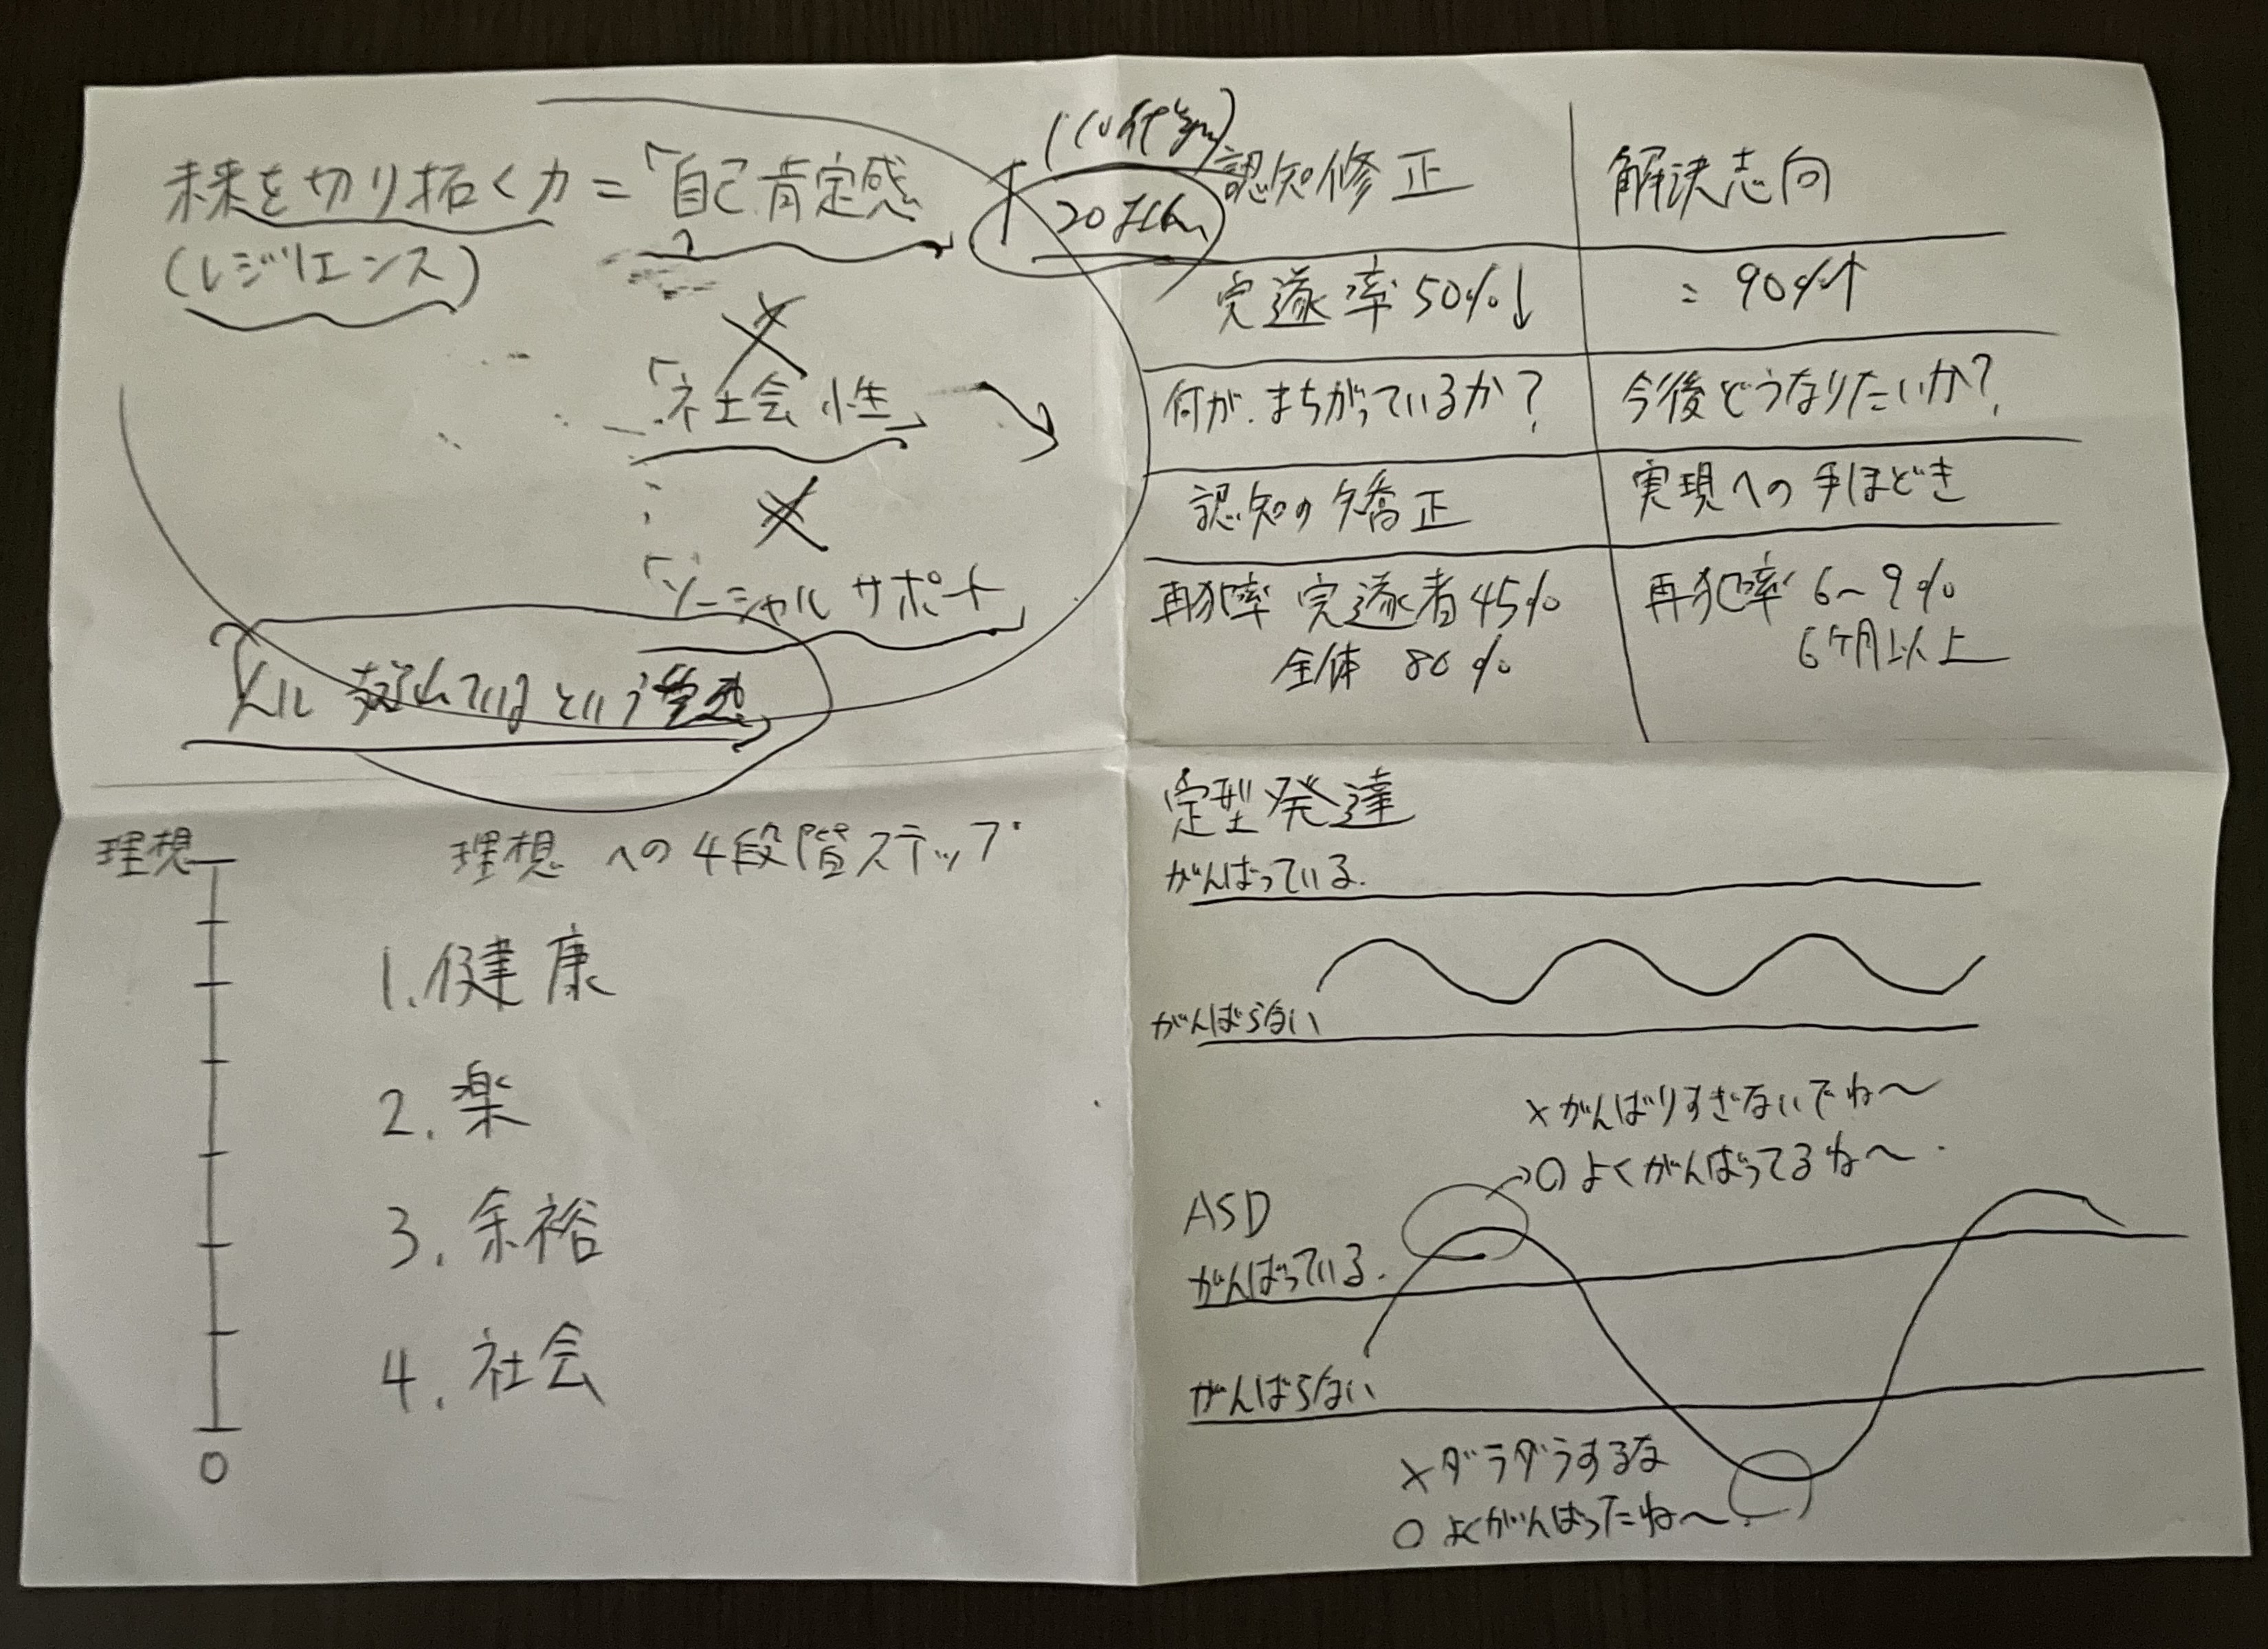 未来を切り拓く力=「自己肯定感
(レジリエンス)
×
「社会性」
×
「ソーシャルサポート」
という
認知修正 解決志向
完遂率50%↓ = 90%↑
何が、まちがっているか? 今後どうなりたいか?
認知の矯正 実現への手ほどき
再犯率 完遂者45% 再犯率 6〜9%
全体 80% 6ヶ月以上
理想
理想への4段階ステップ
1.健康
2.楽
3.余裕
4.社会
0
定型発達
がんばっている
がんばらない
×がんばりすぎないでね〜
→○よくがんばってるね〜
ASD
がんばっている
がんばらない
×ダラダラするな
○よくがんばったね〜